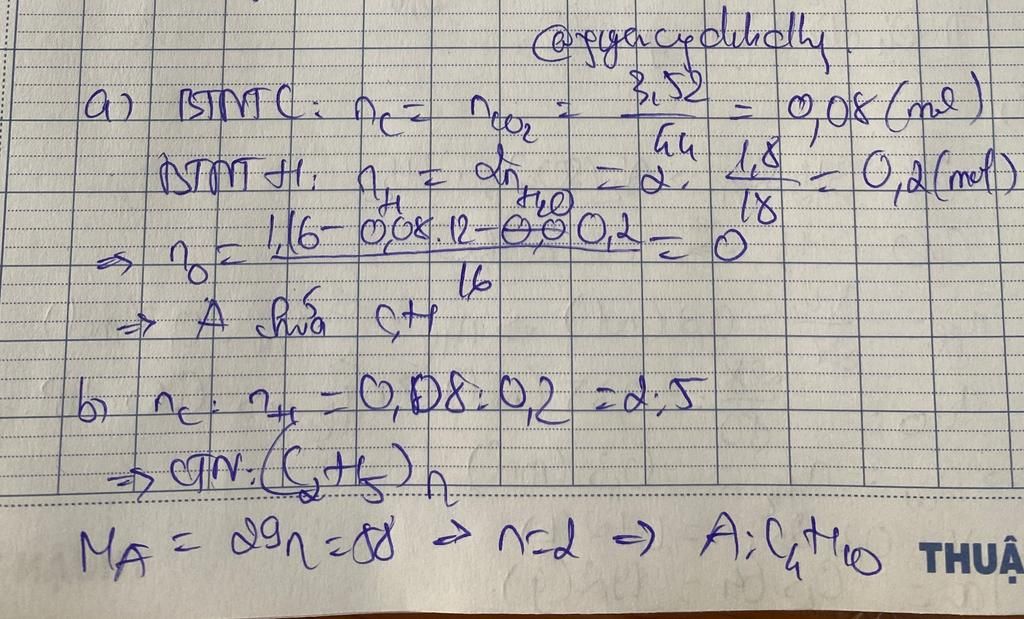 a) BTNT C: nC = nCO2 = 3,52 / 44 = 0,08 (mol)
BTNT H: nH = 2nH2O = 2. 1,8 / 18 = 0,2 (mol)
=> nO = 1,16 - 0,08.12 - 0,2 / 16 = 0
=> A chứa C, H
b) nC : nH = 0,08 : 0,2 = 2:5
=> CTN: (C2H5)n
MA = 29n = 58 => n=2 => A: C4H10
THUẬ